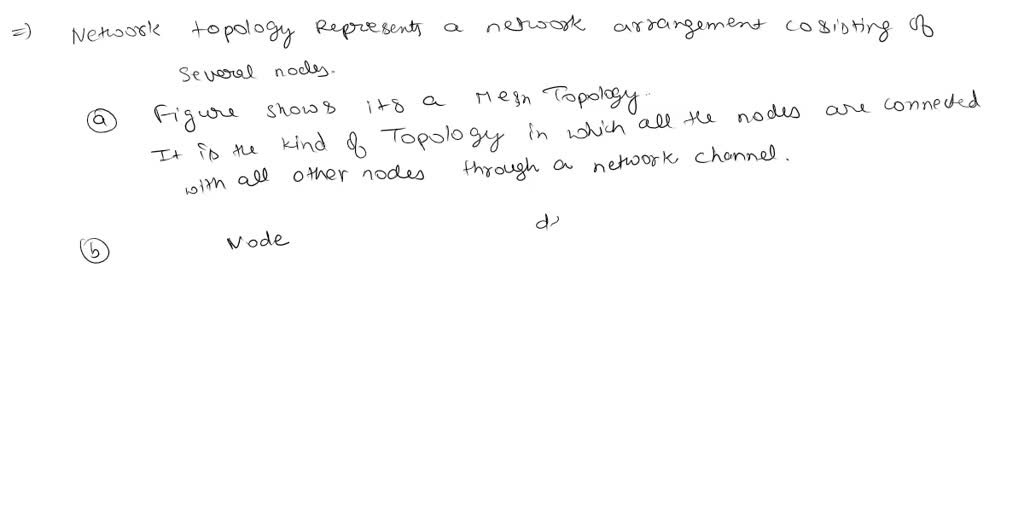 =) Network topology Represents a network arrangement cosisting of
several nodes.
(a) Figure shows its a Mesh Topology.
It is the kind of Topology in which all the nodes are connected
with all other nodes through a network channel.
(b) Node